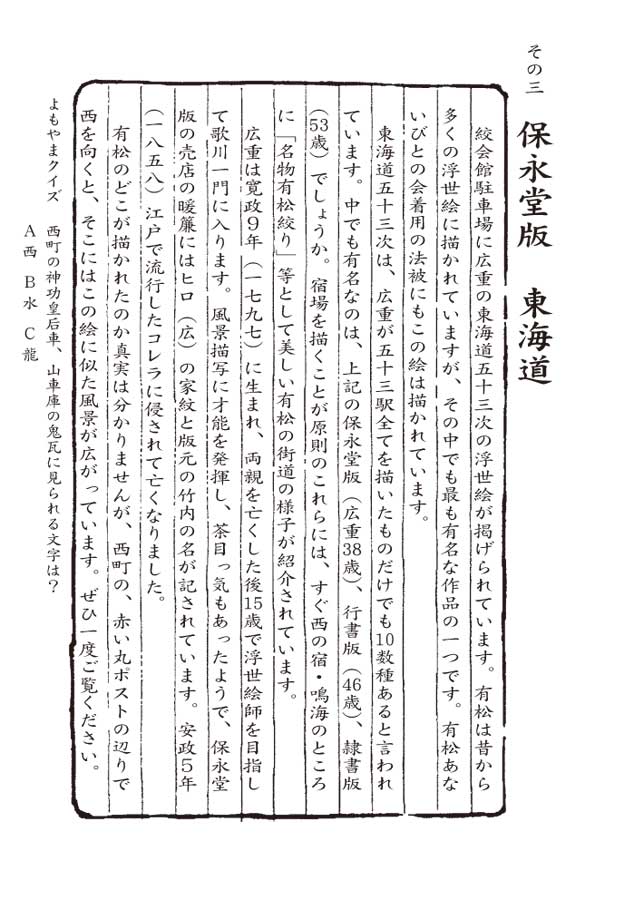 その三　保永堂版　東海道
絞会館駐車場に広重の東海道五十三次の浮世絵が掲げられています。有松は昔から
多くの浮世絵に描かれていますが、その中でも最も有名な作品の一つです。有松あな
いびとの会着用の法被にもこの絵は描かれています。
東海道五十三次は、広重が五十三駅全てを描いたものだけでも10数種あると言われ
ています。中でも有名なのは、上記の保永堂版（広重38歳）、行書版（46歳）、隷書版
（53歳）でしょうか。宿場を描くことが原則のこれらには、すぐ西の宿・鳴海のところ
に「名物有松絞り」等として美しい有松の街道の様子が紹介されています。
広重は寛政９年（一七九七）に生まれ、両親を亡くした後15歳で浮世絵師を目指し
て歌川一門に入ります。風景描写に才能を発揮し、茶目っ気もあったようで、保永堂
版の売店の暖簾にはヒロ（広）の家紋と版元の竹内の名が記されています。安政５年
（一八五八）江戸で流行したコレラに侵されて亡くなりました。
有松のどこが描かれたのか真実は分かりませんが、西町の、赤い丸ポストの辺りで
西を向くと、そこにはこの絵に似た風景が広がっています。ぜひ一度ご覧ください。
よもやまクイズ　西町の神功皇后車、山車庫の鬼瓦に見られる文字は？
Ａ西　Ｂ水　Ｃ龍